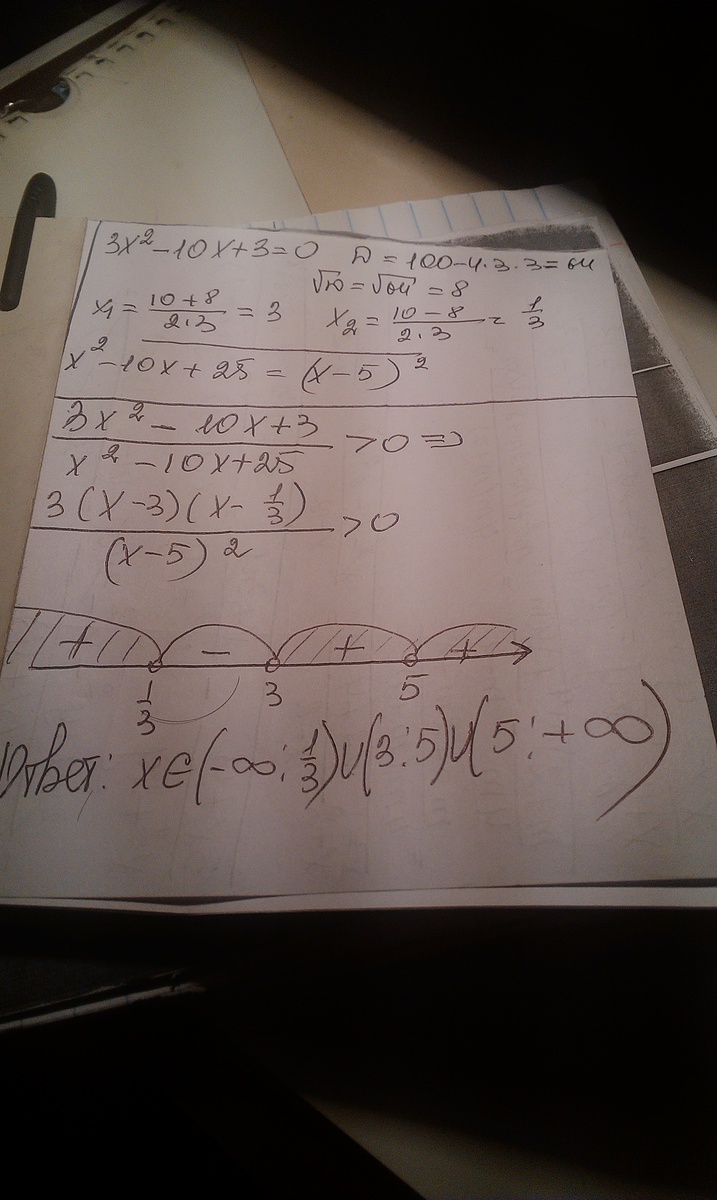 3x² − 10x + 3 = 0 D = 100 − 4·3·3 = 64
√D = √64 = 8
x₁ = (10 + 8)/(2·3) = 3 x₂ = (10 − 8)/(2·3) = 1/3
x² − 10x + 25 = (x − 5)²
(3x² − 10x + 3)/(x² − 10x + 25) > 0 ⇒
3(x − 3)(x − 1/3)/(x − 5)² > 0
+ − + +
1/3 3 5
Ответ: x ∈ (−∞; 1/3) ∪ (3; 5) ∪ (5; +∞)